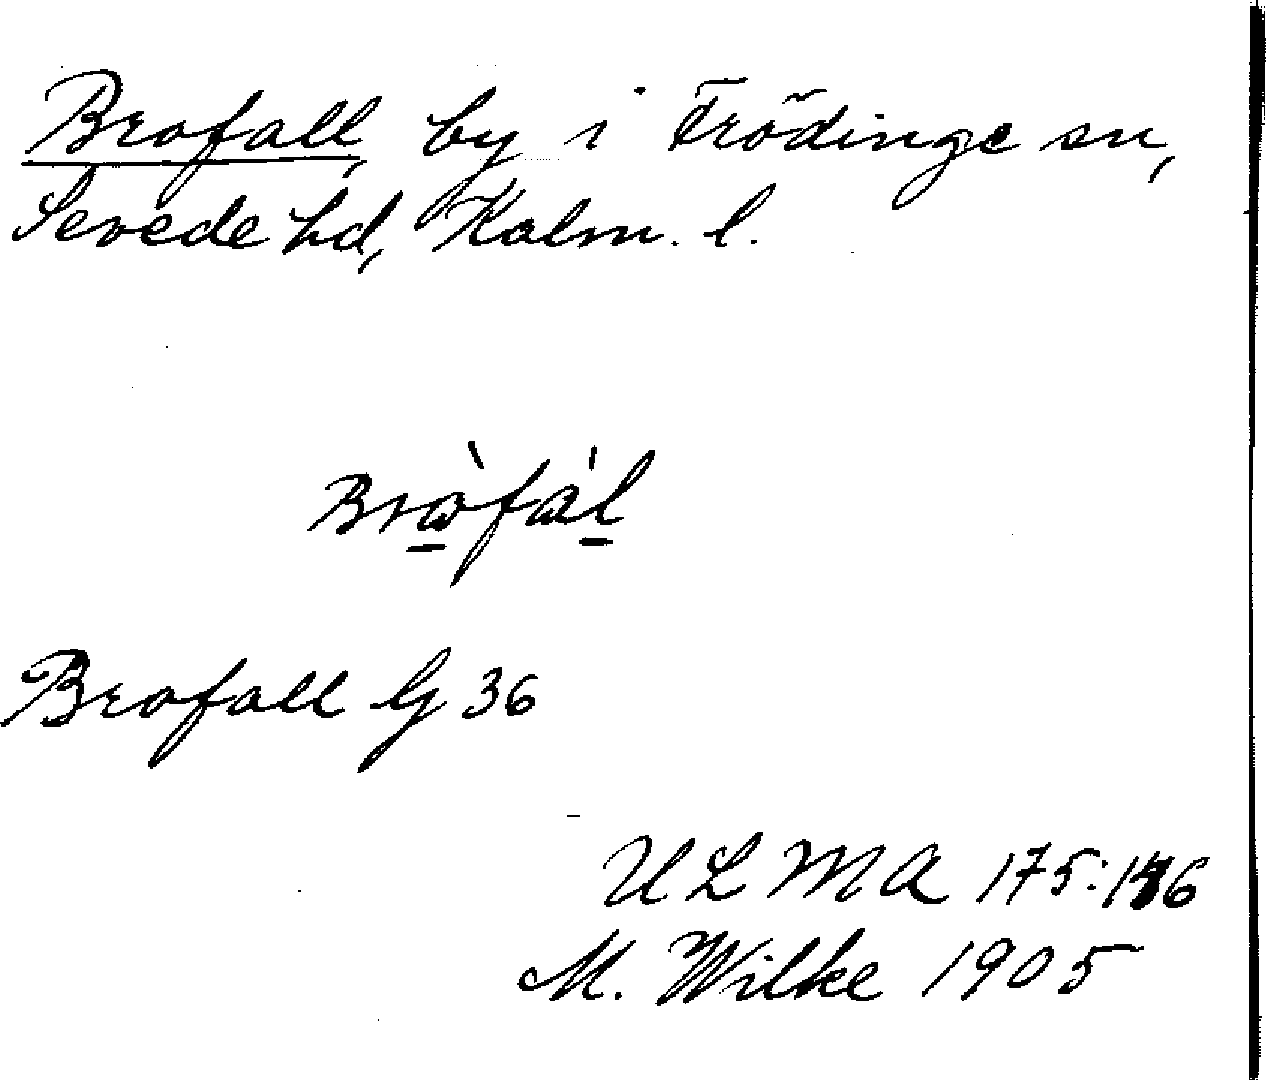 Brofall, by i Frödinge sn,
Sevede hd, Kalm. l.
Brofall G 36
ULMA 175:
M. Wilke 1905